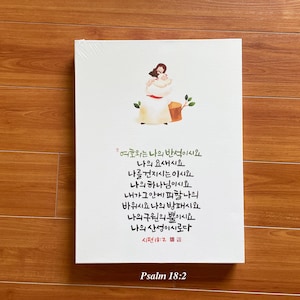 여호와는 나의 반석이시요
나의 요새시요
나를 건지시는 이시요
나의 하나님이시요
내가 그 안에 피할 나의
바위시요 나의 방패시요
나의 구원의 뿔이시요
나의 산성이시로다
시편 18:2
Psalm 18:2